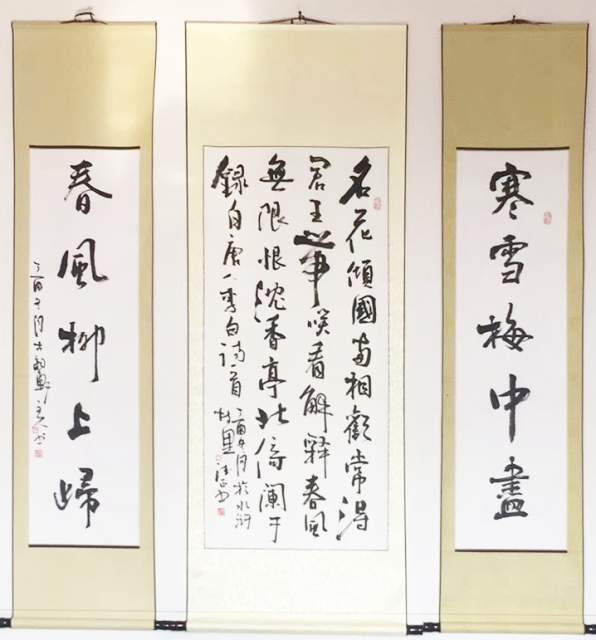 寒雪梅中盡
名花傾國兩相歡常得
君王帶咲看解釋春風
無限恨沈香亭北倚闌干
錄自唐人李白詩一首
春風柳上歸
丁酉